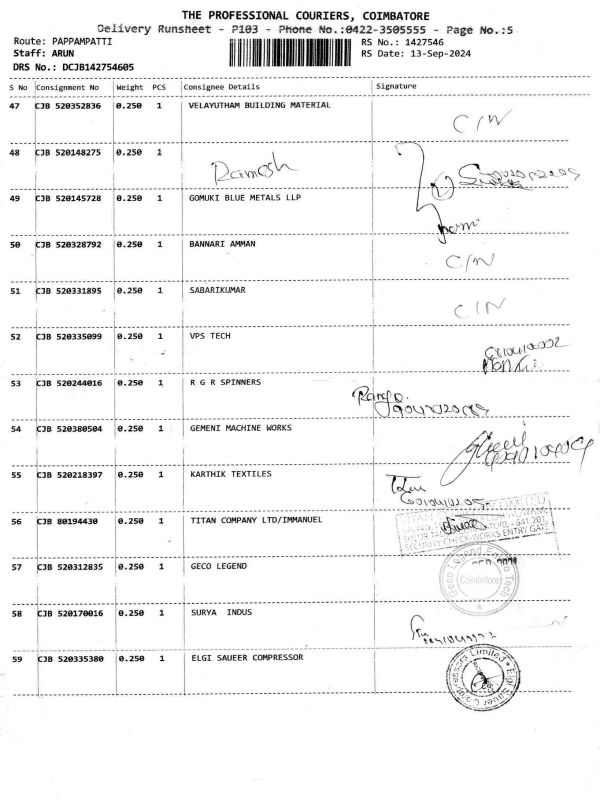 THE PROFESSIONAL COURIERS, COIMBATORE
Delivery Runsheet - P103 - Phone No.:0422-3505555 - Page No.:5
Route: PAPPAMPATTI
Staff: ARUN
DRS No.: DCJB142754605
RS No.: 1427546
RS Date: 13-Sep-2024
S No Consignment No Weight PCS Consignee Details Signature
47 CJB 520352836 0.250 1 VELAYUTHAM BUILDING MATERIAL
C/N
48 CJB 520148275 0.250 1
Ramesh
49 CJB 520145728 0.250 1 GOMUKI BLUE METALS LLP
50 CJB 520328792 0.250 1 BANNARI AMMAN
C/N
51 CJB 520331895 0.250 1 SABARIKUMAR
C/N
52 CJB 520335099 0.250 1 VPS TECH
53 CJB 520244016 0.250 1 R G R SPINNERS
54 CJB 520380504 0.250 1 GEMENI MACHINE WORKS
55 CJB 520218397 0.250 1 KARTHIK TEXTILES
56 CJB 80194430 0.250 1 TITAN COMPANY LTD/IMMANUEL
SECURITY CHECK-WORKS ENTRY GATE
57 CJB 520312835 0.250 1 GECO LEGEND
Coimbatore
58 CJB 520170016 0.250 1 SURYA INDUS
59 CJB 520335380 0.250 1 ELGI SAUEER COMPRESSOR
Elgi Sauer Compressors Limited